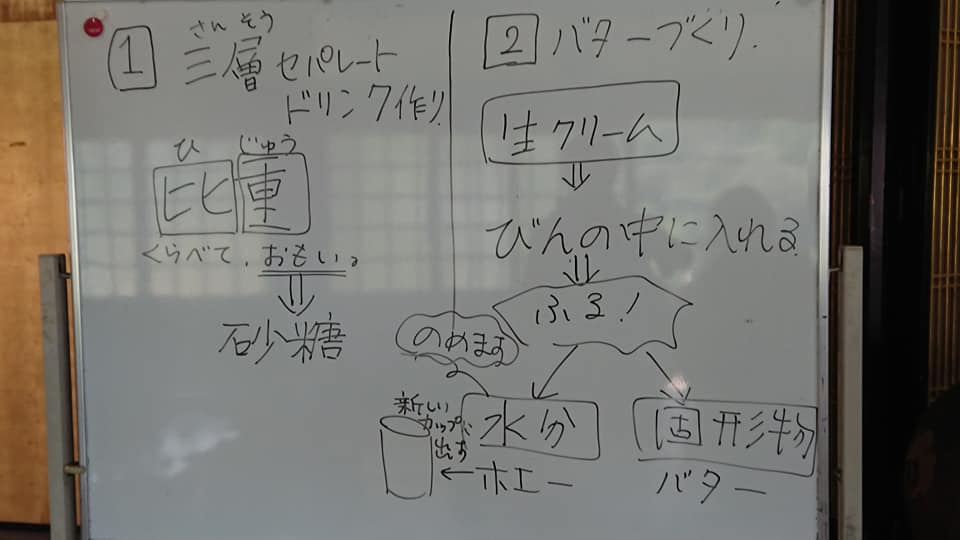 1 三層セパレート
さんそう
ドリンク作り
ひ じゅう
比重
くらべて、おもい。
⇓
砂糖
2 バターづくり.
生クリーム
⇓
びんの中に入れる
⇓
ふる!
のめます
水分
固形物
新しい
カップに
出す
←ホエー
バター